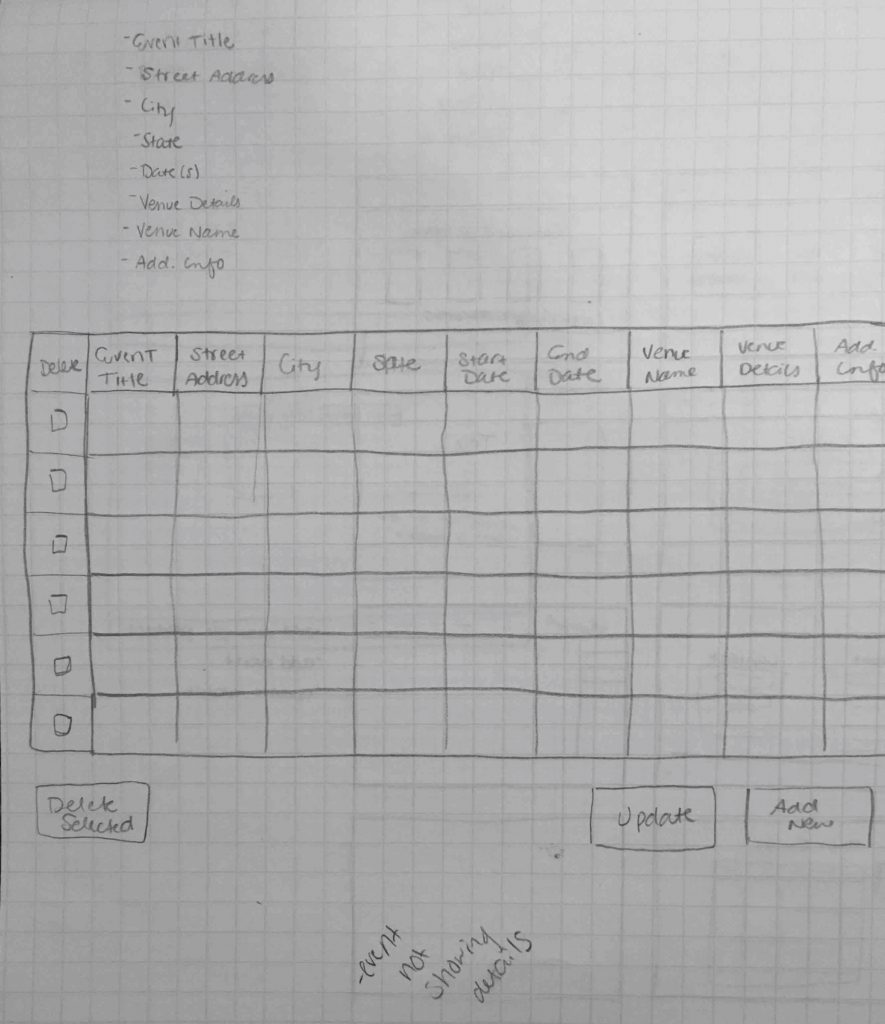 - Event Title
- Street Address
- City
- State
- Date(s)
- Venue Details
- Venue Name
- Add. Info
Delete
Event
Title
Street
Address
City
State
Start
Date
End
Date
Venue
Name
Venue
Details
Add.
Info
Delete
Selected
Update
Add
New
-event
not
showing
details